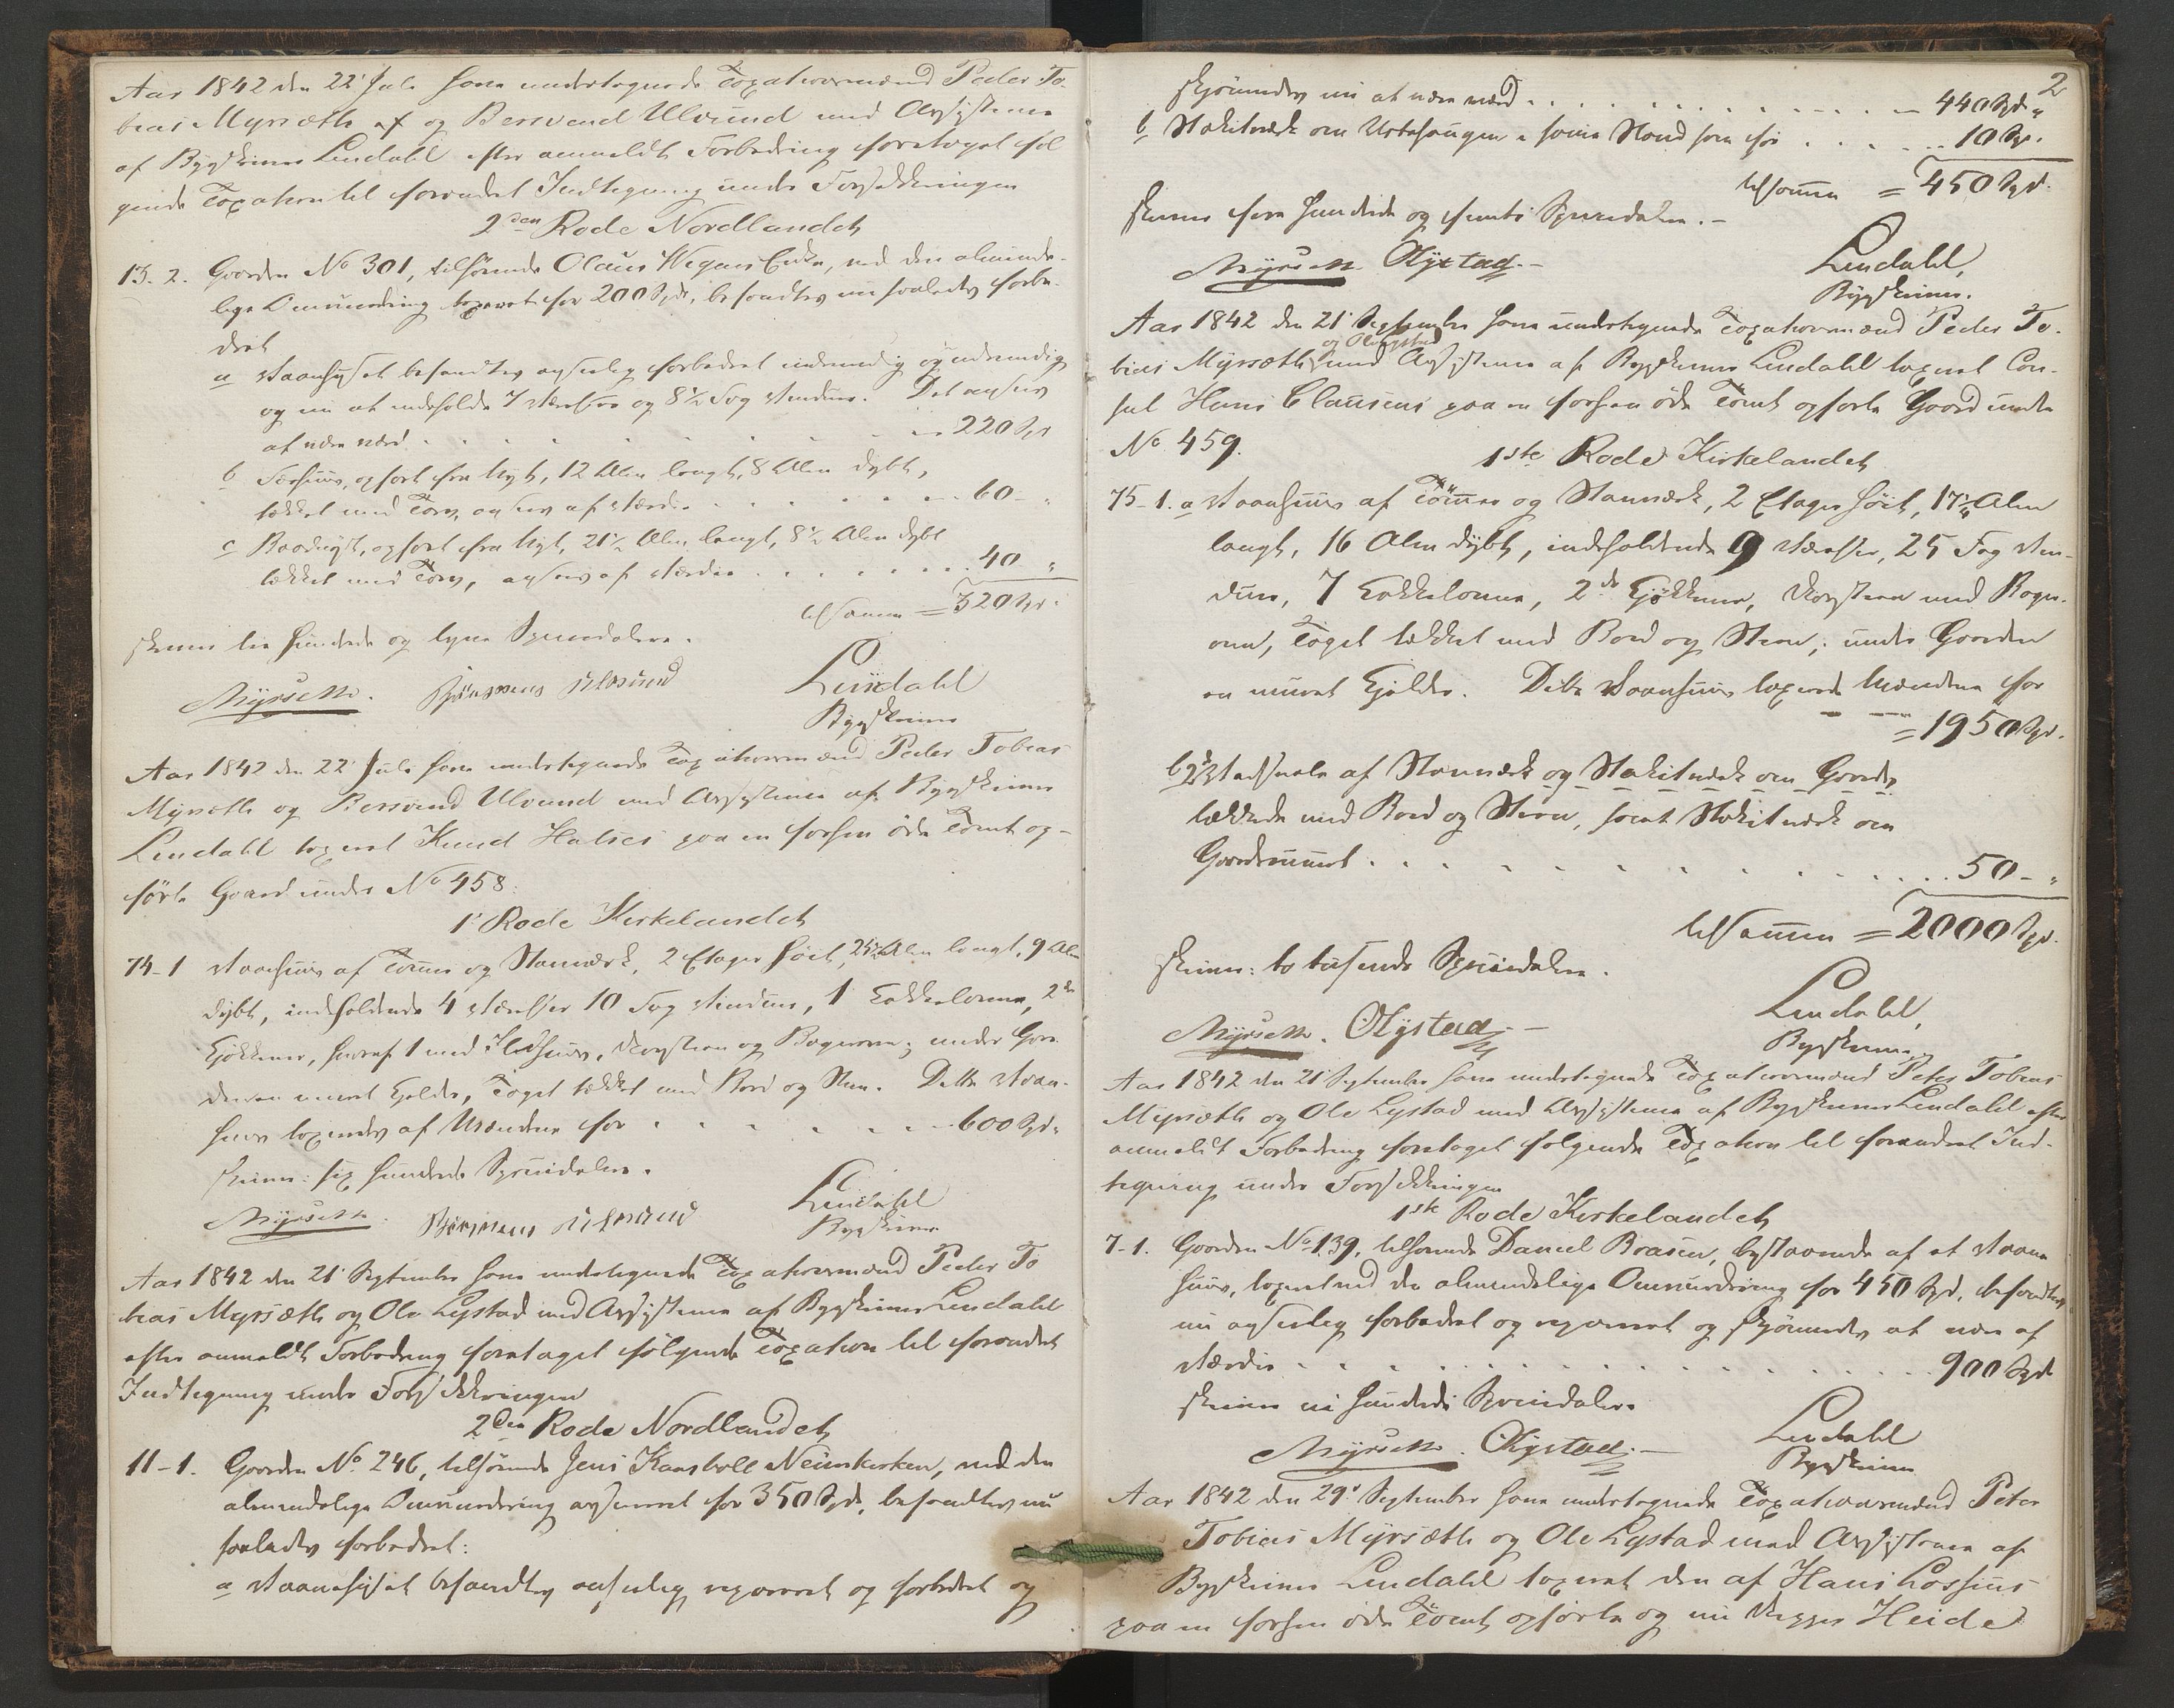 Aar 1842 den 22' Juli have undertegnede Taxationsmænd Peder To-
bias Myrsæth og Bersvend Ulvund med Assistence
af Bygskriver Lindahl efter anmeldt Forbedring foretaget føl
gende Taxation til forandret Indtegning under Forsikkringen
2den Rode Nordlandet
13. 2. Gaarden No 301, tilhørende Olaus Wegans Enke, ved den alminde-
lige Omvurdering taxeret for 200 Spd, befandtes nu saaledes forbe-
dret
a Vaanhuset befandtes anseelig forbedret indvendig og udvendig
og nu at indeholde 7 Værelser og 8½ Fag Vinduer. Det ansees
at være værd . . . . . . . 220 Spd
b Førhuus, opført fra Nyt, 12 Alen langt, 8 Alen dybt,
tækket med Torv, ansees af Værdie . . . . . 60 - "
c Baadnøst, opført fra Nyt, 21½ Alen langt, 8½ Alen dybt
tækket med Torv, ansees af Værdie . . . . . . 40 "
tilsamen = 320 Spd.
skriver tre hundrede og tyve Speciedaler.
Myrseth. Ulvund Lindahl
Bygskriver
Aar 1842 den 22' Juli have undertegnede Taxationsmænd Peder Tobias
Myrsæth og Bersvend Ulvund med Assistence af Bygskriver
Lindahl taxeret Knud Halses paa en forhen øde Tomt op-
førte Gaard under No 458.
1' Rode Kirkelandet
74-1 Vaanhuus af Tømer og Stavværk, 2 Etager høit, 25½ Alen langt, 9 Alen
dybt, indeholdende 4 Værelser 10 Fag Vinduer, 1 Kakkelovne, 2de
Kjøkkener, hvoraf 1 med Ildhuus, Skorsteen og Bagerovn; under Gaar
den en muret Kjelder, Taget tækket med Bord og Steen. Dette Vaan-
huus taxeredes af Mændene for . . . . . . 600 Spd.
skriver: sex hundrede Speciedaler.
Myrseth. Ulvund Lindahl
Bygskriver
Aar 1842 den 21' September have undertegnede Taxationsmænd Peder To
bias Myrsæth og Ole Lystad med Assistence af Bygskriver Lindahl
efter anmeldt Forbedring foretaget følgende Taxation til forandret
Indtegning under Forsikkringen
2den Rode Nordlandet
11-1. Gaarden No. 246, tilhørende Jens Kaasbøll Neunkirken, ved den
almindelige Omvurdering ansat for 350 Spd, befandtes nu
saaledes forbedret:
a Vaanehuset befandtes anseelig repareret og forbedret og
2
skjønnedes nu at være værd . . . . . . . . . 440 Spd "
b Stakitværk om Urtehaugen i samme Stand som før . . . . . 10 Sp.
tilsammen = 450 Spd.
skriver fire hundrede og femti Speciedaler. -
Myrseth Olystad. - Lindahl,
Bygskriver.
Aar 1842 den 21' September have undertegnede Taxationsmænd Peder To-
og Ole Lystad
bias Myrsæth med Assistence af Bygskriver Lindahl taxeret Con-
sul Hans Clausens paa en forhen øde Tomt opførte Gaard under
No 459.
1ste Rode Kirkelandet
75-1. a Vaanhuus af Tømmer og Stavværk, 2 Etager høit, 17¼ Alen
langt, 16 Alen dybt, indeholdende 9 Værelser, 25 Fag Vin-
duer, 7 Kakkelovne, 2de Kjøkkener, Skorsteen med Bager-
ovn, Taget tækket med Bord og Steen; under Gaarden
en muret Kjelder. Dette Vaanhuus taxerede Mændene for
= 1950 Spd.
b af Stavværk og Stakitværk om Gaards
tækkede med Bord og Steen, samt Stakitværk om
Gaardsrumet . . . . . . . . . . 50 - "
tilsammen = 2000 Spd.
skriver: to tusende Speciedaler.
Myrseth. Olystad. - Lindahl,
Bygskriver
Aar 1842 den 21' September have undertegnede Taxationsmænd Peter Tobias
Myrsæth og Ole Lystad med Assistence af Bygskriver Lindahl efter
anmeldt Forbedring foretaget følgende Taxation til forandret Ind-
tegning under Forsikkringen
1ste Rode Kirkelandet
7-1. Gaarden No 139, tilhørende Daniel Brasen, bestaaende af et Vaane
huus, taxeret ved den almindelige Omvurdering for 450 Spd, befandtes
nu anseelig forbedret og repareret og skjønnedes at være af
Værdie . . . . . . . . . . . . 900 Spd
skriver ni hundrede Speciedaler.
Myrseth. Olystad. - Lindahl
Bygskriver
Aar 1842 den 29' September have undertegnede Taxationsmænd Peter
Tobias Myrsæth og Ole Lystad med Assistence af
Bygskriver Lindahl taxeret den af Hans Lossius
paa en forhen øde Tomt opførte og nu Skipper Heide